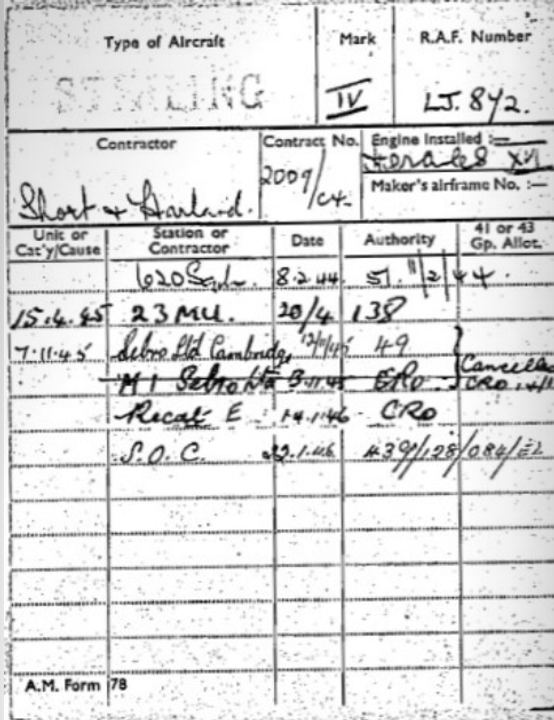 Type of Aircraft Mark R.A.F. Number
STIRLING IV LJ.842.
Contractor Contract No. Engine Installed :—
Short & Harland. 2009/C4. XVI
Maker's airframe No. :—
Unit or Cat'y/Cause Station or Contractor Date Authority 41 or 43 Gp. Allot.
620 Sqdn. 8.2.44 51. 11/2/44.
15.4.45 23 MU. 20/4 138
7.11.45 Sebro Ltd Cambridge 12/11/45 49
M I Sebro Ltd 3.11.45 CRO. Cancelled CRO
Recat E 14.1.46 CRO
S.O.C. 22.1.46 439/128/084/EL
A.M. Form 78